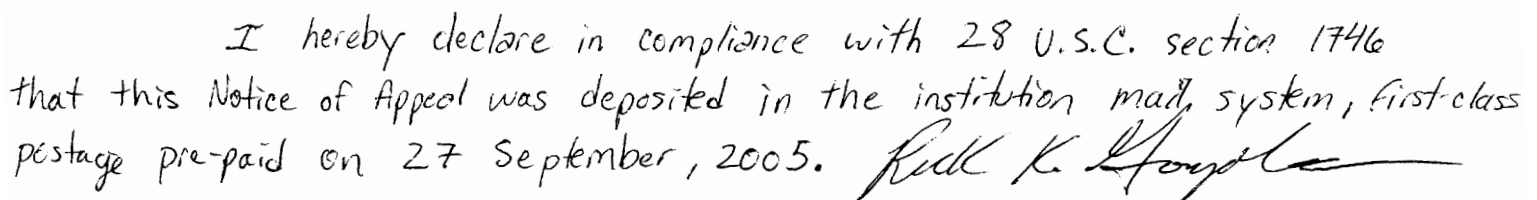 I hereby declare in compliance with 28 U.S.C. section 1746
that this Notice of Appeal was deposited in the institution mail system, first-class
postage pre-paid on 27 September, 2005. K.